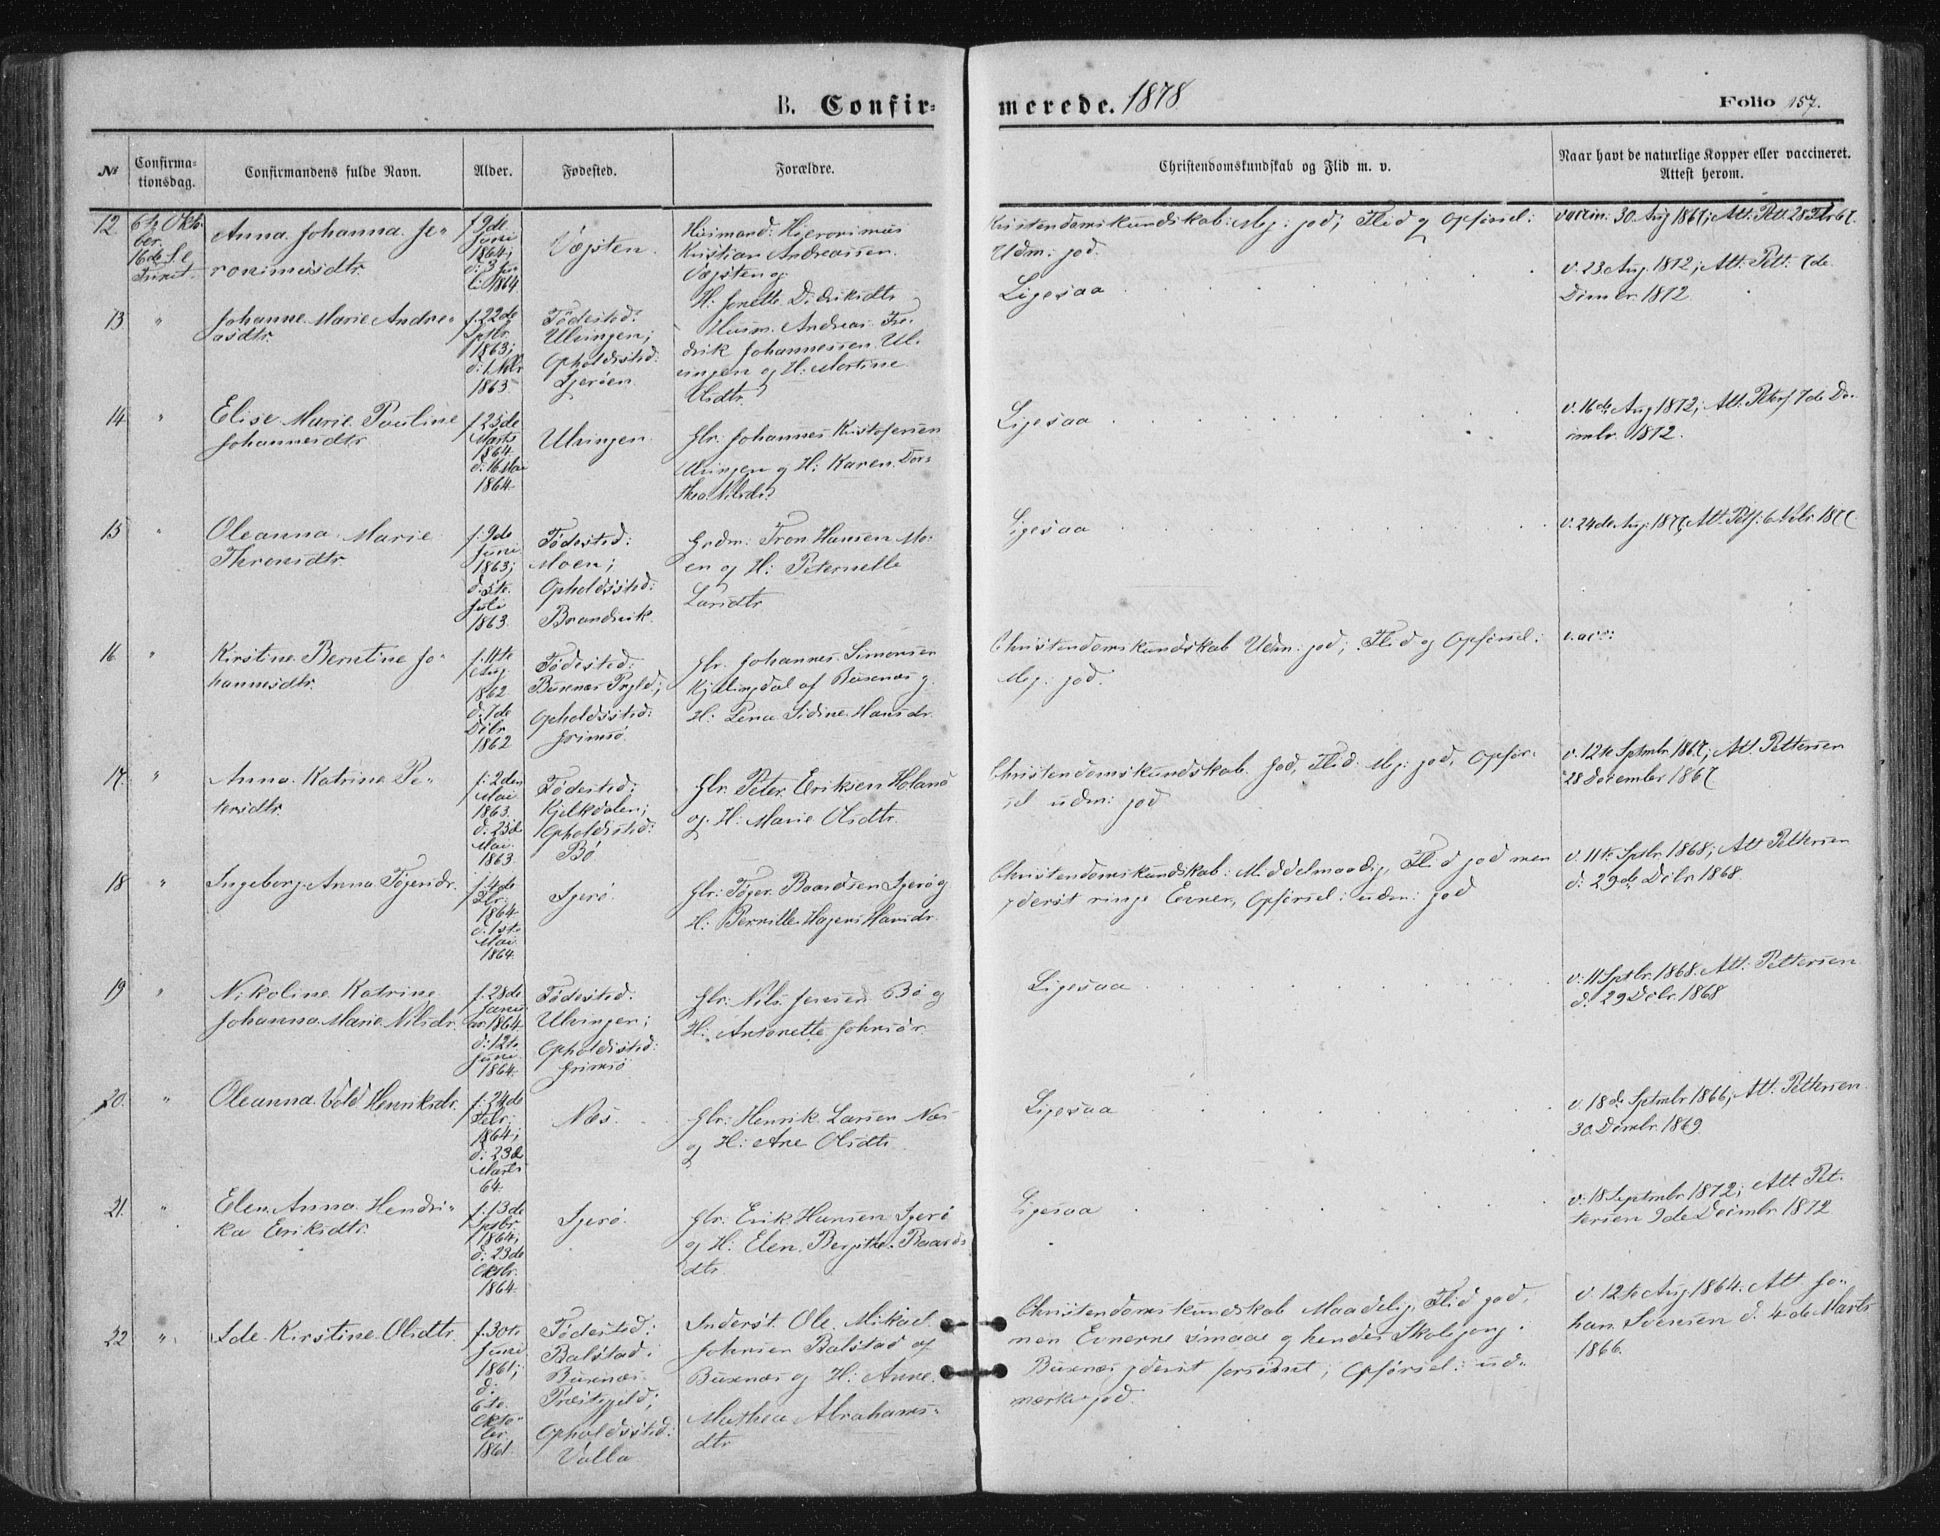 B. Confir-
merede. 1878
Folio 157.
№
Confirma-
tionsdag.
Confirmandens fulde Navn.
Alder.
Fødested.
Forældre.
Christendomskundskab og Flid m. v.
Naar havt de naturlige Kopper eller vaccineret.
Attest herom.
12
6te Okto-
ber
16de S. e.
Trinit.
Anna Johanna Je-
ronimusdtr.
f. 9de
Juni
1864;
d: 3 Ju-
li 1864
Vægsten
Husmand: Hieronimus
Kristian Andreassen
Vægsten og
H: Jonette Didriksdtr
Kristendomskundskab: Mg: god, Flid og Opførsel:
Udm: god.
vaccin: 30 Aug 1867; Att. Pett. 28
13
"
Johanne Marie Andre-
asdtr.
f. 22de
Sptbr.
1863;
d: 1 Nbr
1863
Fødested:
Ulvingen;
Opholdssted:
Sjerøen
Husm. Andreas Fre-
drik Johannessen Ul-
vingen og H: Martine
Olsdtr
Ligesaa
v. 23 Aug. 1872; Att. Pett. 7de
Dcmbr. 1872
14
"
Elise Marie Pauline
Johannesdtr
f. 25de
Marts
1864
d: 16 Mai
1864
Ulvingen
Gbr. Johannes Kristofersen
Ulvingen og H: Karen Dor-
thea Nilsdtr
Ligesaa
v. 16de Aug 1872; Att. Petters 7de De-
cmbr. 1872.
15
"
Oleanna Marie
Thronsdtr
f. 9de
Juni
1863;
d. 5te
Juli
1863
Fødested:
Moen;
Opholdssted:
Brandvik
Grdm: Tron Hansen Mo-
en og H: Peternelle
Larsdtr
Ligesaa
v. 24de Aug: 1877, Att. Pett: 6 Nvbr 1877
16
"
Kirstine Berntine Jo-
hannesdtr.
f. 11te
Aug
1862
d. 7de
Dcbr
1862
Fødested:
Buxnæs Prgld;
Opholdssted:
Grimsø
Gbr. Johannes Simonsen
Kjelingdal af Buxnæs og
H: Lena Sidine Hansdr.
Christendomskundskab Udm: god; Flid og Opførsel:
Mg: god.
vacc:
17.
"
Anna Katrine Pe-
tersdtr.
f. 2den
Mai
1863.
d. 25de
Mai
1863
Fødested:
Kjelkdalen;
Opholdssted:
Bø
Gbr. Peter Eriksen Holand
og H: Marie Olsdtr.
Christendomskundskab. god, Flid. Mg: god, Opfør-
sel udm: god
v. 12te Sptmbr 1867; Att. Pettersen
28 December 1867
18
"
Ingeborg Anna Tøgersdr.
f. 4de
1864
d. 1ste
Mai
1864
Sjerø.
Gbr: Tøger Baardsen Sjerø og
H: Pernille Hagens Hansdr.
Christendomskundskab: Middelmaadig, Flid god men
yderst ringe Evner, Opførsel: udm: god
v. 11te Sptbr 1868; Att Pettersen
d: 29de Dcbr 1868
19
"
Nikoline Katrine
Johanna Marie Nilsdr.
f. 28de
Janu-
ar 1864
d: 12te
Juni
1864
Fødested:
Ulvingen;
Opholdssted:
Grimsø
Gbr: Nils Jensen Bø og
H: Antonette Johnsdr.
Ligesaa
v. 11 Sptbr. 1868. Att: Pettersen
d. 29 Dcbr 1868
20.
"
Oleanna Vold Henriksdr.
f. 24de
Febr.
1864;
d: 23de
Marts
64.
Næs.
Gbr: Henrik Larsen Næs
og H: Ane Olsdtr.
Ligesaa
v. 18de Sptmbr 1866; Att. Pettersen
30 Dcmbr. 1869
21.
"
Elen Anna Hendri-
ka Eriksdtr.
f. 13de
Sptbr.
1864;
d: 23de
Oktbr.
1864.
Sjerø.
Gbr. Erik Hansen Sjerø
og H: Elen Bergitte Baards-
dtr.
Ligesaa
v: 18 Septmbr 1872; Att. Pet-
tersen 9de Decmbr 1872
22
"
Ide Kirstine Olsdtr.
f. 30te
Juni
1861;
d.
6te
Okto-
ber
1861.
Fødested:
Balstad;
Buxnæs
Præstegjeld;
Opholdssted:
Valla
Inderst. Ole Mikael
Johnsen Balstad af
Buxnæs og H: Anne
Mathea Abrahams-
dtr
Christendomskundskab Maadelig, Flid god,
men Evnerne smaae og hendes Skolegang i
Buxnæs yderst forsømt; Opførsel: ud-
mærket god.
v 12te Aug 1864. Att. Jo-
han Svensen d. 4de Marts
1866.